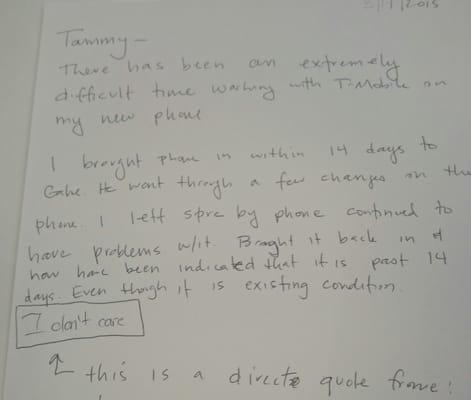 3/17/2015
Tammy -
There has been an extremely
difficult time working with T-Mobile on
my new phone
I brought phone in within 14 days to
Gabe. He went through a few changes on the
phone. I left store by phone continued to
have problems w/it. Brought it back in &
now have been indicated that it is past 14
days. Even though it is existing condition.
I don't care
this is a direct quote from: